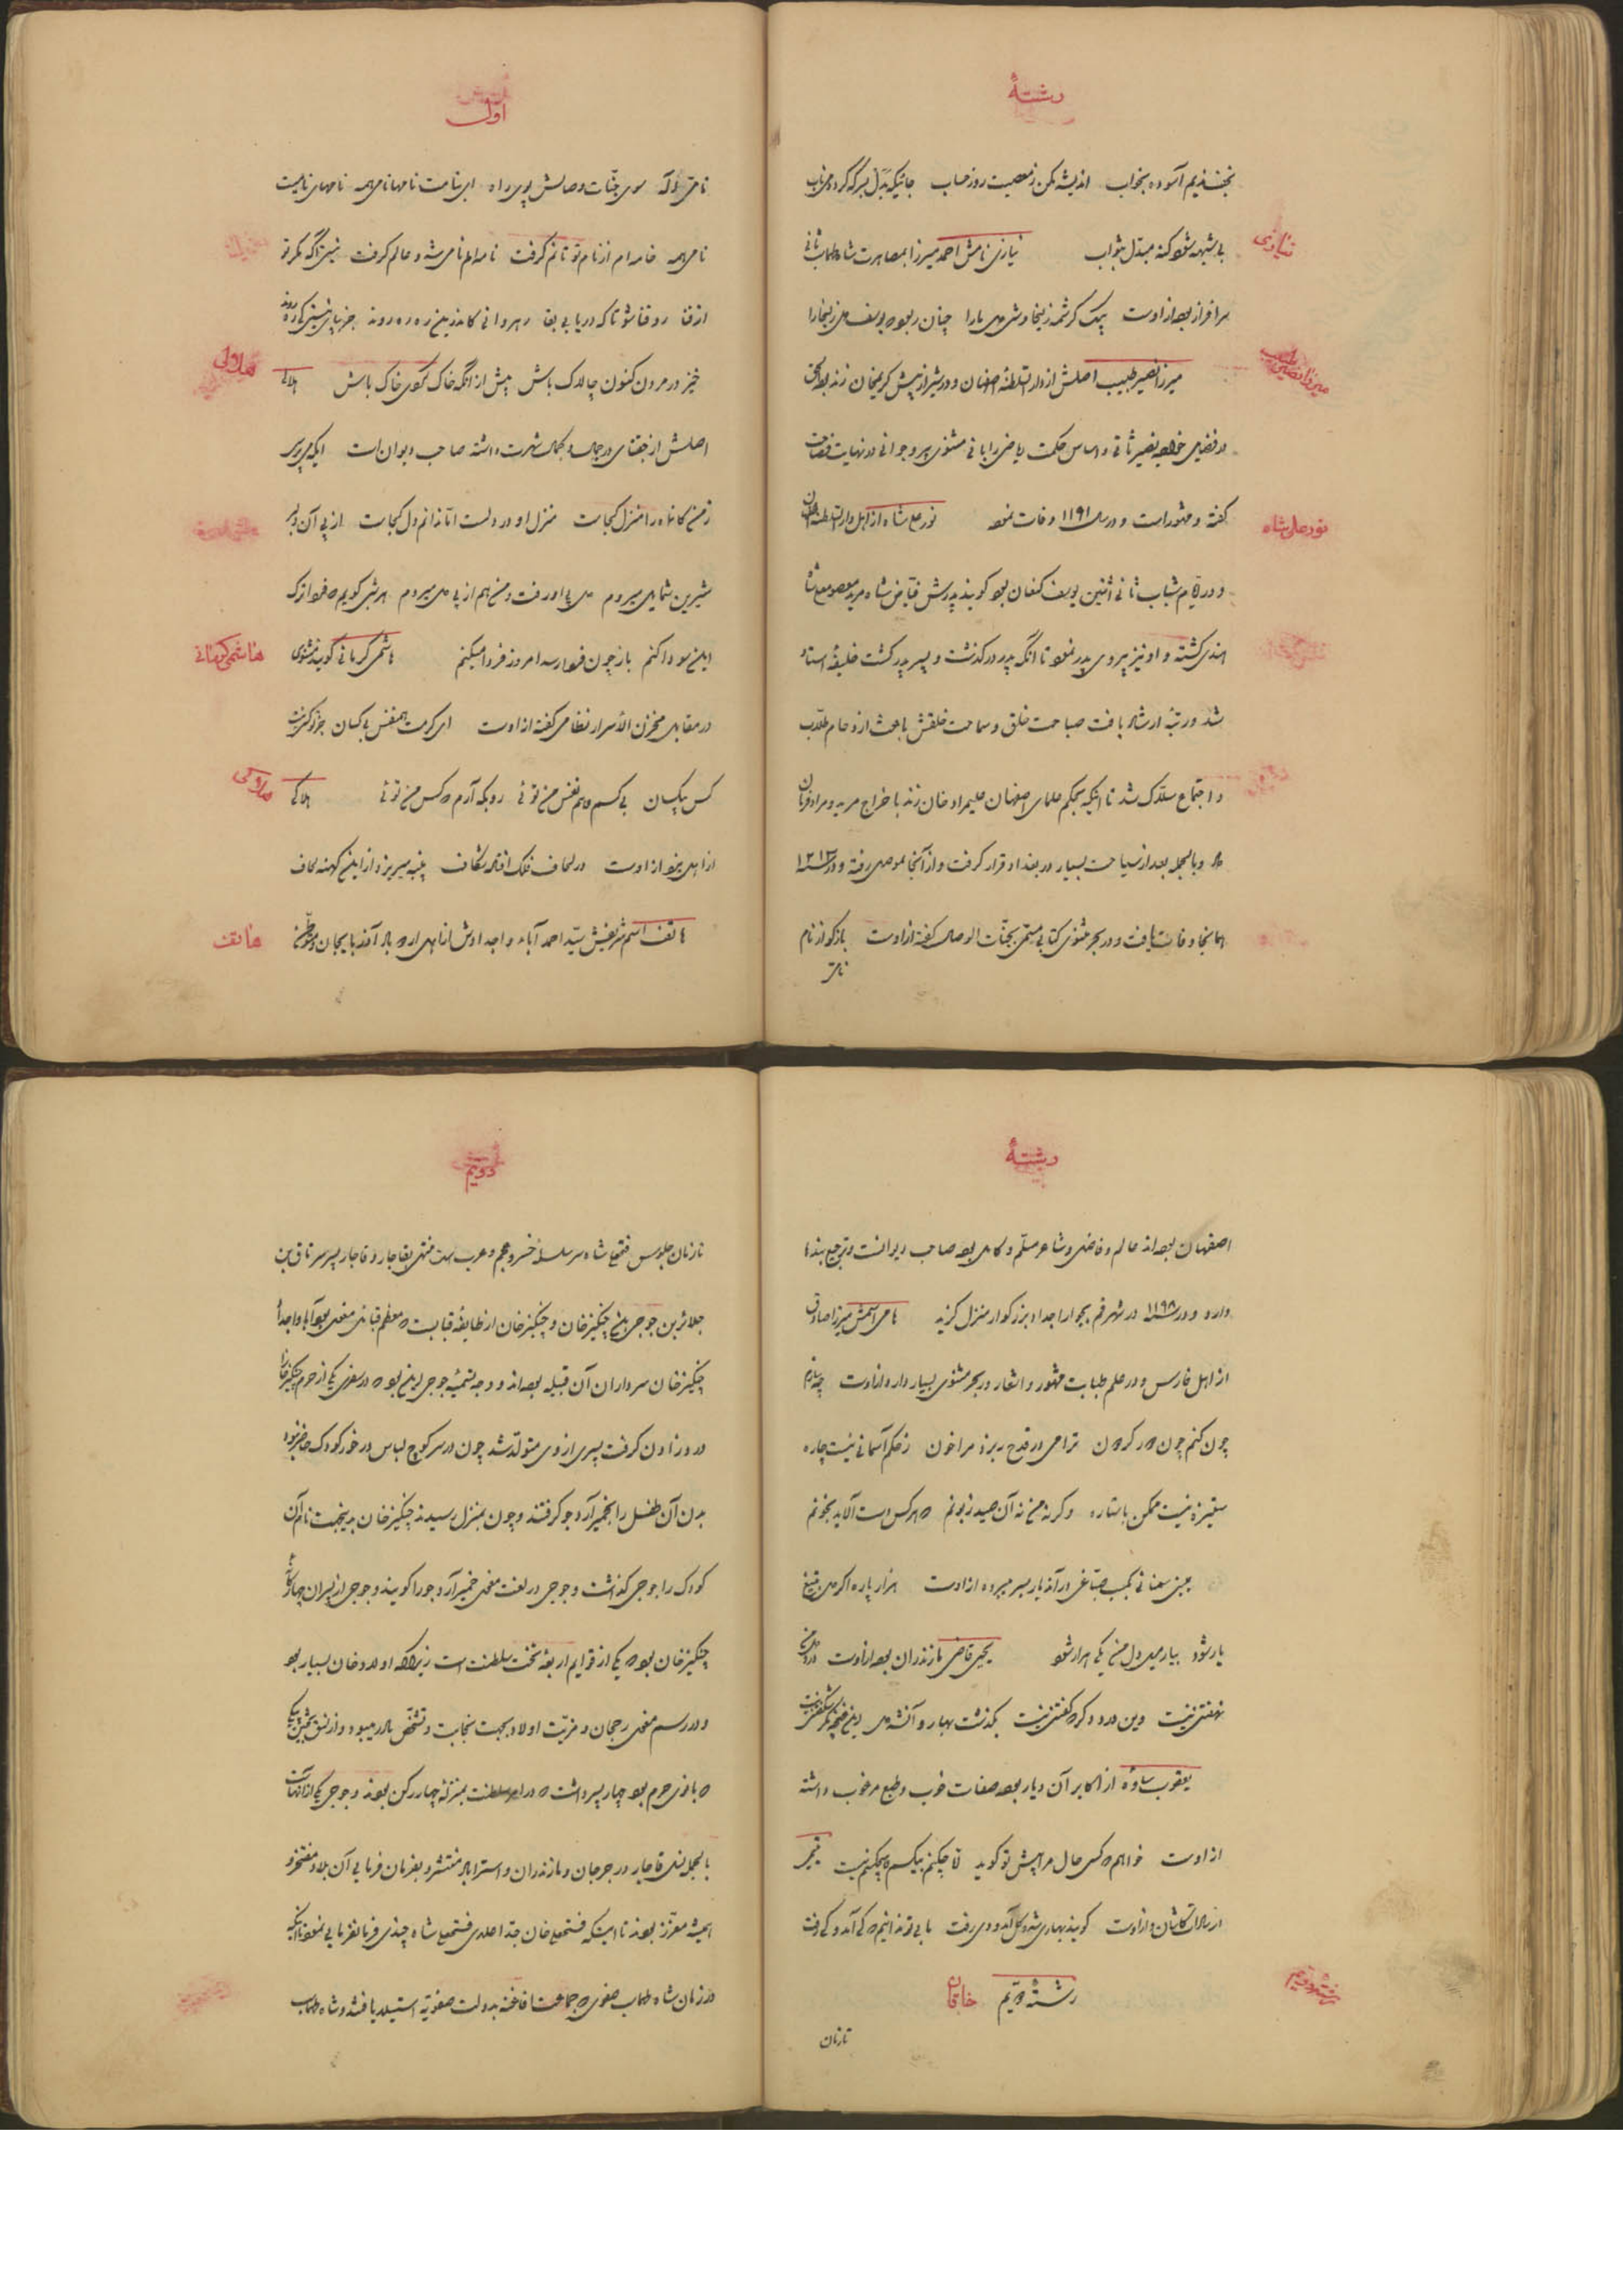 رشتهٔ
بخفتدیم آسوده بخواب اندیشه مکن ز معصیت روز حساب جائیکه بدل
بی شبهه شود گنه مبدل بثواب نیازی نامش احمد میرزا بمصاهرت شاه طهماسب ثانی
نیازی
سرافراز بوده از اوست بیک کرشمه زلیخاوشی دل ما را چنان ربود که یوسف دل زلیخا را
میرزا نصیر طبیب اصلش از دار السلطنه اصفهان و در شیراز پیش کریمخان زند بوده
میرزا نصیر طبیب
در فضیلت خواجه نصیر ثانی و اساس حکمت ریاضی را بانی مثنوی پیر و جوانی در نهایت فصاحت
گفته و مشهور است و در سال ۱۱۹۱ وفات نموده نور علیشاه از اهل دار السلطنه اصفهان
نور علی شاه
و در ایام شباب ثانی اثنین یوسف کنعان بود گویند پدرش فیاض شاه مرید معصوم علی شاه
هندی گشته و او نیز پیروی پدر نموده تا آنکه پدر درگذشت و پسر پدر گشت خلیفهٔ استاد
شد و رتبهٔ ارشاد یافت صباحت خلق و سماحت خلقش باعث ازدحام طلاب
و اجتماع سلاک شد تا اینکه بحکم علمای اصفهان علیمراد خان زند باخراج مرید و مراد فرمان
داد و بالجمله بعد از سیاحت بسیار در بغداد قرار گرفت و از آنجا بموصل رفته و در سنه ۱۲۱۲
همانجا وفات یافت و در بحر مثنوی کتابی مسمی بجنات الوصال گفته از اوست بازگو از نام
نامی
اول
سوی جنات وصالش پوی راه ای بنامت نامها نامی همه نامهای نامیت
نامی همه خامه‌ام از نام تو تا نم گرفت نامه‌ام نامی شد و عالم گرفت
از فنا رو فنا شو تا که دریابی بقا رهروانی کاندرین ره ره روند
خیز و در مردن کنون چالاک باش پیش از آنکه خاک گردی خاک باش هلالی
هلالی
اصلش از جغتای در جمال و کمال شهرت داشته صاحب دیوان است ایکه می‌پرسی
ز من کان ماه را منزل کجاست منزل او در دلست اما ندانم دل کجاست از پی آن دلبر
شیرین شمایل میروم دل پی او رفت و من هم از پی دل میروم هر شبی گویم که فردا ترک
این سودا کنم باز چون فردا رسد امروز فردا میکنم هاشمی کرمانی گوید مثنوی
هاشمی کرمانی
در مقابل مخزن الأسرار نظامی گفته از اوست ای کرمت همنفس بیکسان جز تو کسی نیست
کس بیکسان بی‌کسم و هم نفس من توئی رو بکه آرم که کس من توئی هلاکی
هلاکی
از اهل از اوست در لحاف فلک افتاده شکاف پنبه میریزد از این کهنه لحاف
هاتف اسم شریفش سید احمد آباء و اجدادش از اهل اردوباد آذربایجان و متوطن
هاتف
رشتهٔ
اصفهان بوده‌اند عالم و فاضل و شاعر مسلم و کامل بوده صاحب دیوانست و ترجیع بندها
دارد و در سنه ۱۱۹۸ در شهر قم بجوار اجداد بزرگوار منزل گزید نامی اسمش میرزا صادق
از اهل فارس و در علم طبابت مشهور و اشعار در بحر مثنوی بسیار دارد از اوست چه سازم
چون کنم چون کرد گردون ترا می در قدح ریزد مرا خون ز حکم آسمانی نیست چاره
ستیزه نیست ممکن با ستاره وگرنه من نه آن صید زبونم که هر کس دست آلاید بخونم
بکسب صباغی در آن دیار بسر میبرده از اوست هزار پاره اگر دل ز تیغ
یار شود بیاری دل من یکی هزار شود یحیی قاضی مازندران بوده از اوست
نهفتنی نیست وین درد دگر که گفتنی نیست بگذشت بهار و آن شد دل این غنچه مگر شکفتنی نیست
یعقوب ساوه از اکابر آن دیار بوده صفات خوب و طبع مرغوب داشته
از اوست خواهم که کسی حال مرا پیش تو گوید تا چکنم بیکسم هیچکسم نیست
از سادات کاشان و از اوست گویند بهاری شد و گل آمد و دی رفت ما بی تو ندانیم که کی آمد و کی رفت
رشتهٔ دویم خاقان
رشته دویم
تا زمان
دویم
تا زمان جلوس فتحعلی شاه سر سلسلهٔ خسرو عجم و عرب است منتهی بقاجار و قاجار پسر سرتاق بن
جلایر بن جوجی بن چنگیز خان و چنگیز خان از طایفهٔ قیات که معظم قبایل مغول بود آبا و اجداد
چنگیز خان سرداران آن قبیله بوده‌اند و وجه تسمیهٔ جوجی این بود که در سفری یکی از حرم چنگیز خان
درد زادن گرفت پسری از وی متولد شد چون در سر کوچ لباس در خور کودک حاضر نبود
بدن آن طفل را بخمیر آرد جو گرفتند و چون بمنزل رسیدند چنگیز خان بدینجهت نام آن
کودک را جوجی گذاشت و جوجی در لغت مغول خمیر آرد جو را گویند و جوجی از پسران چهارگانهٔ
چنگیز خان بود که یکی از قوایم اربعهٔ تخت سلطنت است زیرا که اولاد خان بسیار بود
و در رسم مغول رجحان و مزیت اولاد بجهت نجابت و تشخص مادر میبود و از بیکی
که بانوی حرم بود چهار پسر داشت که در امر سلطنت بمنزلهٔ چهار رکن بودند و جوجی یکی از آنهاست
بالجمله ایل قاجار در جرجان و مازندران و استراباد منتشر و بفرمان فرمایی آن بلاد مفتخر و
همیشه معزز بودند تا اینکه فتحعلیخان جد اعلای فتحعلی شاه چندی فرمانفرمایی نمود تا آنکه
در زمان شاه طهماسب صفوی که جماعت افاغنه بدولت صفویه استیلا یافتند و شاه طهماسب